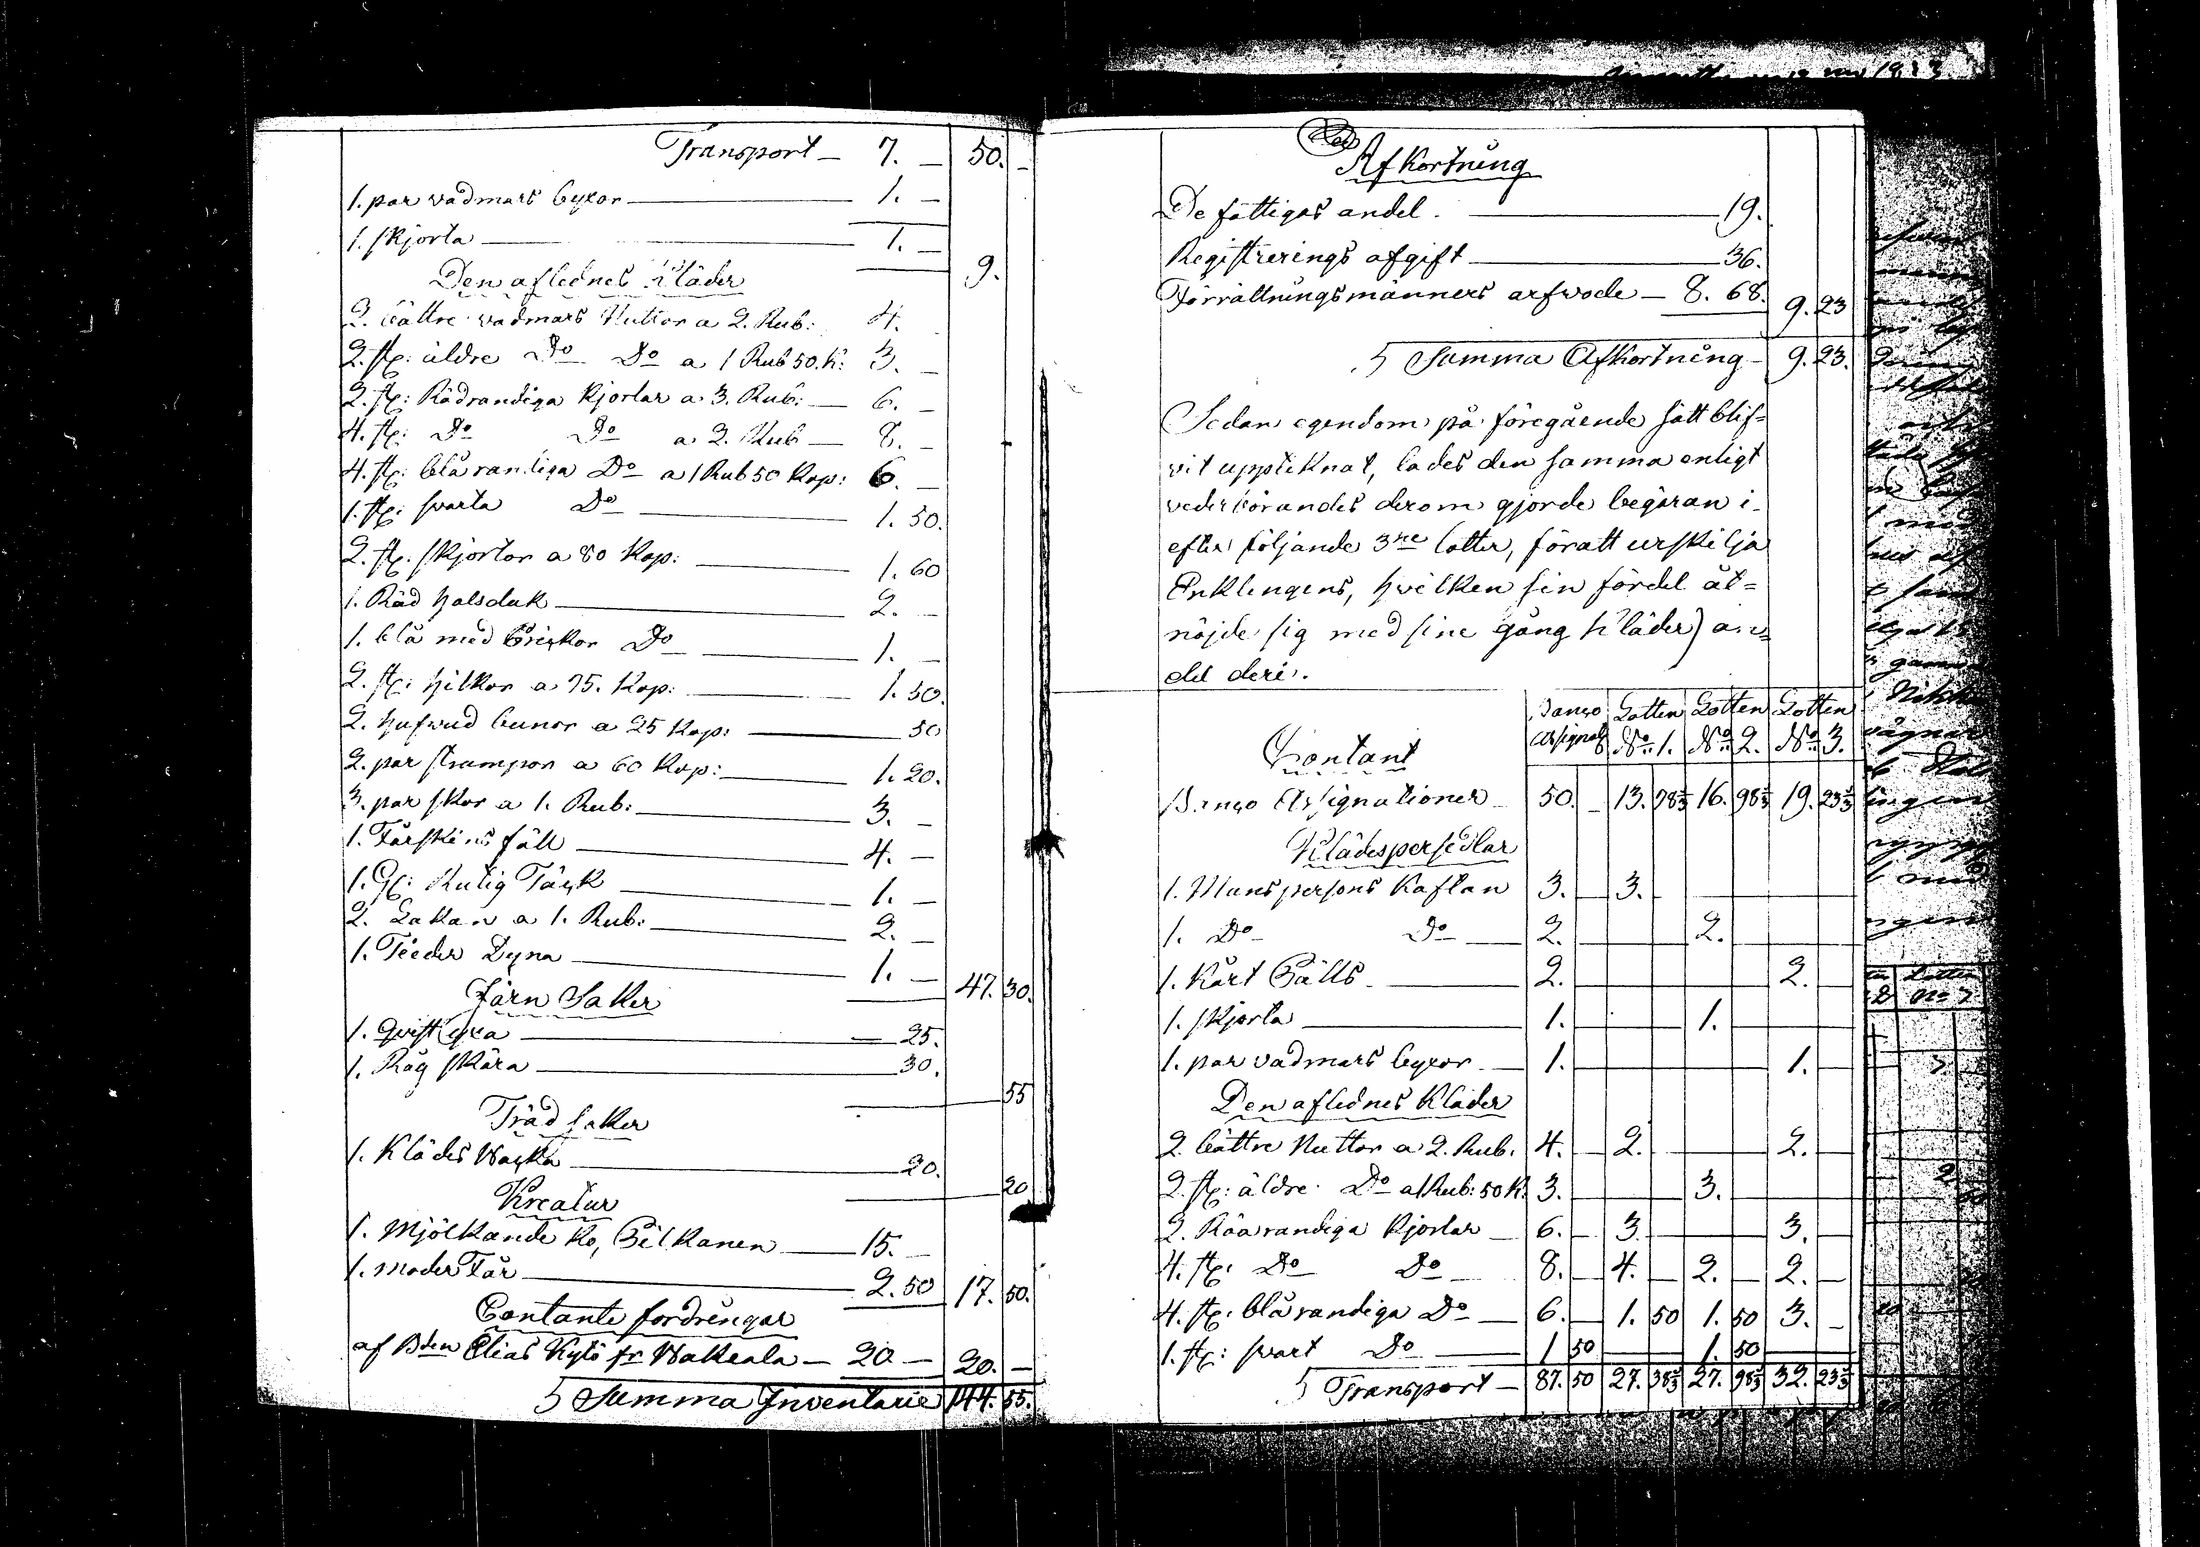 Transport — 7. — 50. —
1. par vadmars byxor — 1. —
1. skjorta — 1. —
9.
Den aflednes Kläder
2. bättre vadmars Nuttor a 2. Rub: 4.
2. st: äldre Do Do a 1 Rub 50. K: 3. —
2. st: Rådrandiga Kjortlar a 3. Rub: — 6. —
4. st: Do Do a 2. Rub — 8. —
4. st: blårandiga Do a 1 Rub 50 Kop: 6. —
1. st: svarta Do — 1. 50.
2. st: skjortor a 80 Kop: — 1. 60
1. Råd halsduk — 2. —
1. blå med Do — 1. —
2. st: hilkor a 75. Kop: — 1. 50.
2. hufwud bunor a 25 Kop: — 50
2. par strumpor a 60 Kop: — 1. 20.
3. par skor a 1. Rub: — 3. —
1. Fårskins fäll — 4. —
1. Gl: Rutig Täck — 1. —
2. Lakan a 1. Rub: — 2. —
1. Feeder Dyna — 1. — 47. 30.
Järn Saker
1. qvist yxa — 25.
1. Råg skära — 30.
55
Träd saker
1. Klädes Wacka — 20.
20
Kreatur
1. Mjölkande Ko, Pilkanen — 15. —
1. moder Får — 2. 50 17. 50.
Contante fordringar
af Bden Elias Kylö fr Wakeala — 20 — 20. —
Summa Inventarie 144. 55.
Afkortning
De fattigas andel. — 19.
Registrerings afgift — 36.
Förrättningsmänners arfwode — 8. 68. 9. 23
Summa Afkortning — 9. 23.
Sedan egendom på föregående sätt blif=
vit upptiknat, lades den samma enligt
vederbörandes derom gjorde begäran i
efter följande 3ne lotter, föratt urskilja
Enklingens, hvilken sin fördel åt=
nöjde sig med sine gång Kläder) an=
del deri.
Banco Assignat Lotten No 1. Lotten No 2. Lotten No 3.
Contant
Banco Assignationer 50. — 13. 78⅓ 16. 98⅓ 19. 23⅓
Klädespersedlar
1. Manspersons Kaftan 3. — 3. —
1. Do Do — 2. — 2. —
1. Kårt Pälts — 2. — 2. —
1. skjorta — 1. — 1. —
1. par vadmars byxor — 1. — 1. —
Den aflednes Kläder
2 bättre Nuttor a 2. Rub. 4. — 2. — 2. —
2. st: äldre Do a 1 Rub: 50 K. 3. — 3. —
2. Råarandiga Kjorlar — 6. — 3. — 3. —
4. st: Do Do — 8. — 4. — 2. — 2. —
4. st: blårandiga Do — 6. — 1. 50 1. 50 3. —
1. st: svart Do — 1 50 — 1. 50
Transport — 87. 50 27. 98⅓ 32. 23⅓